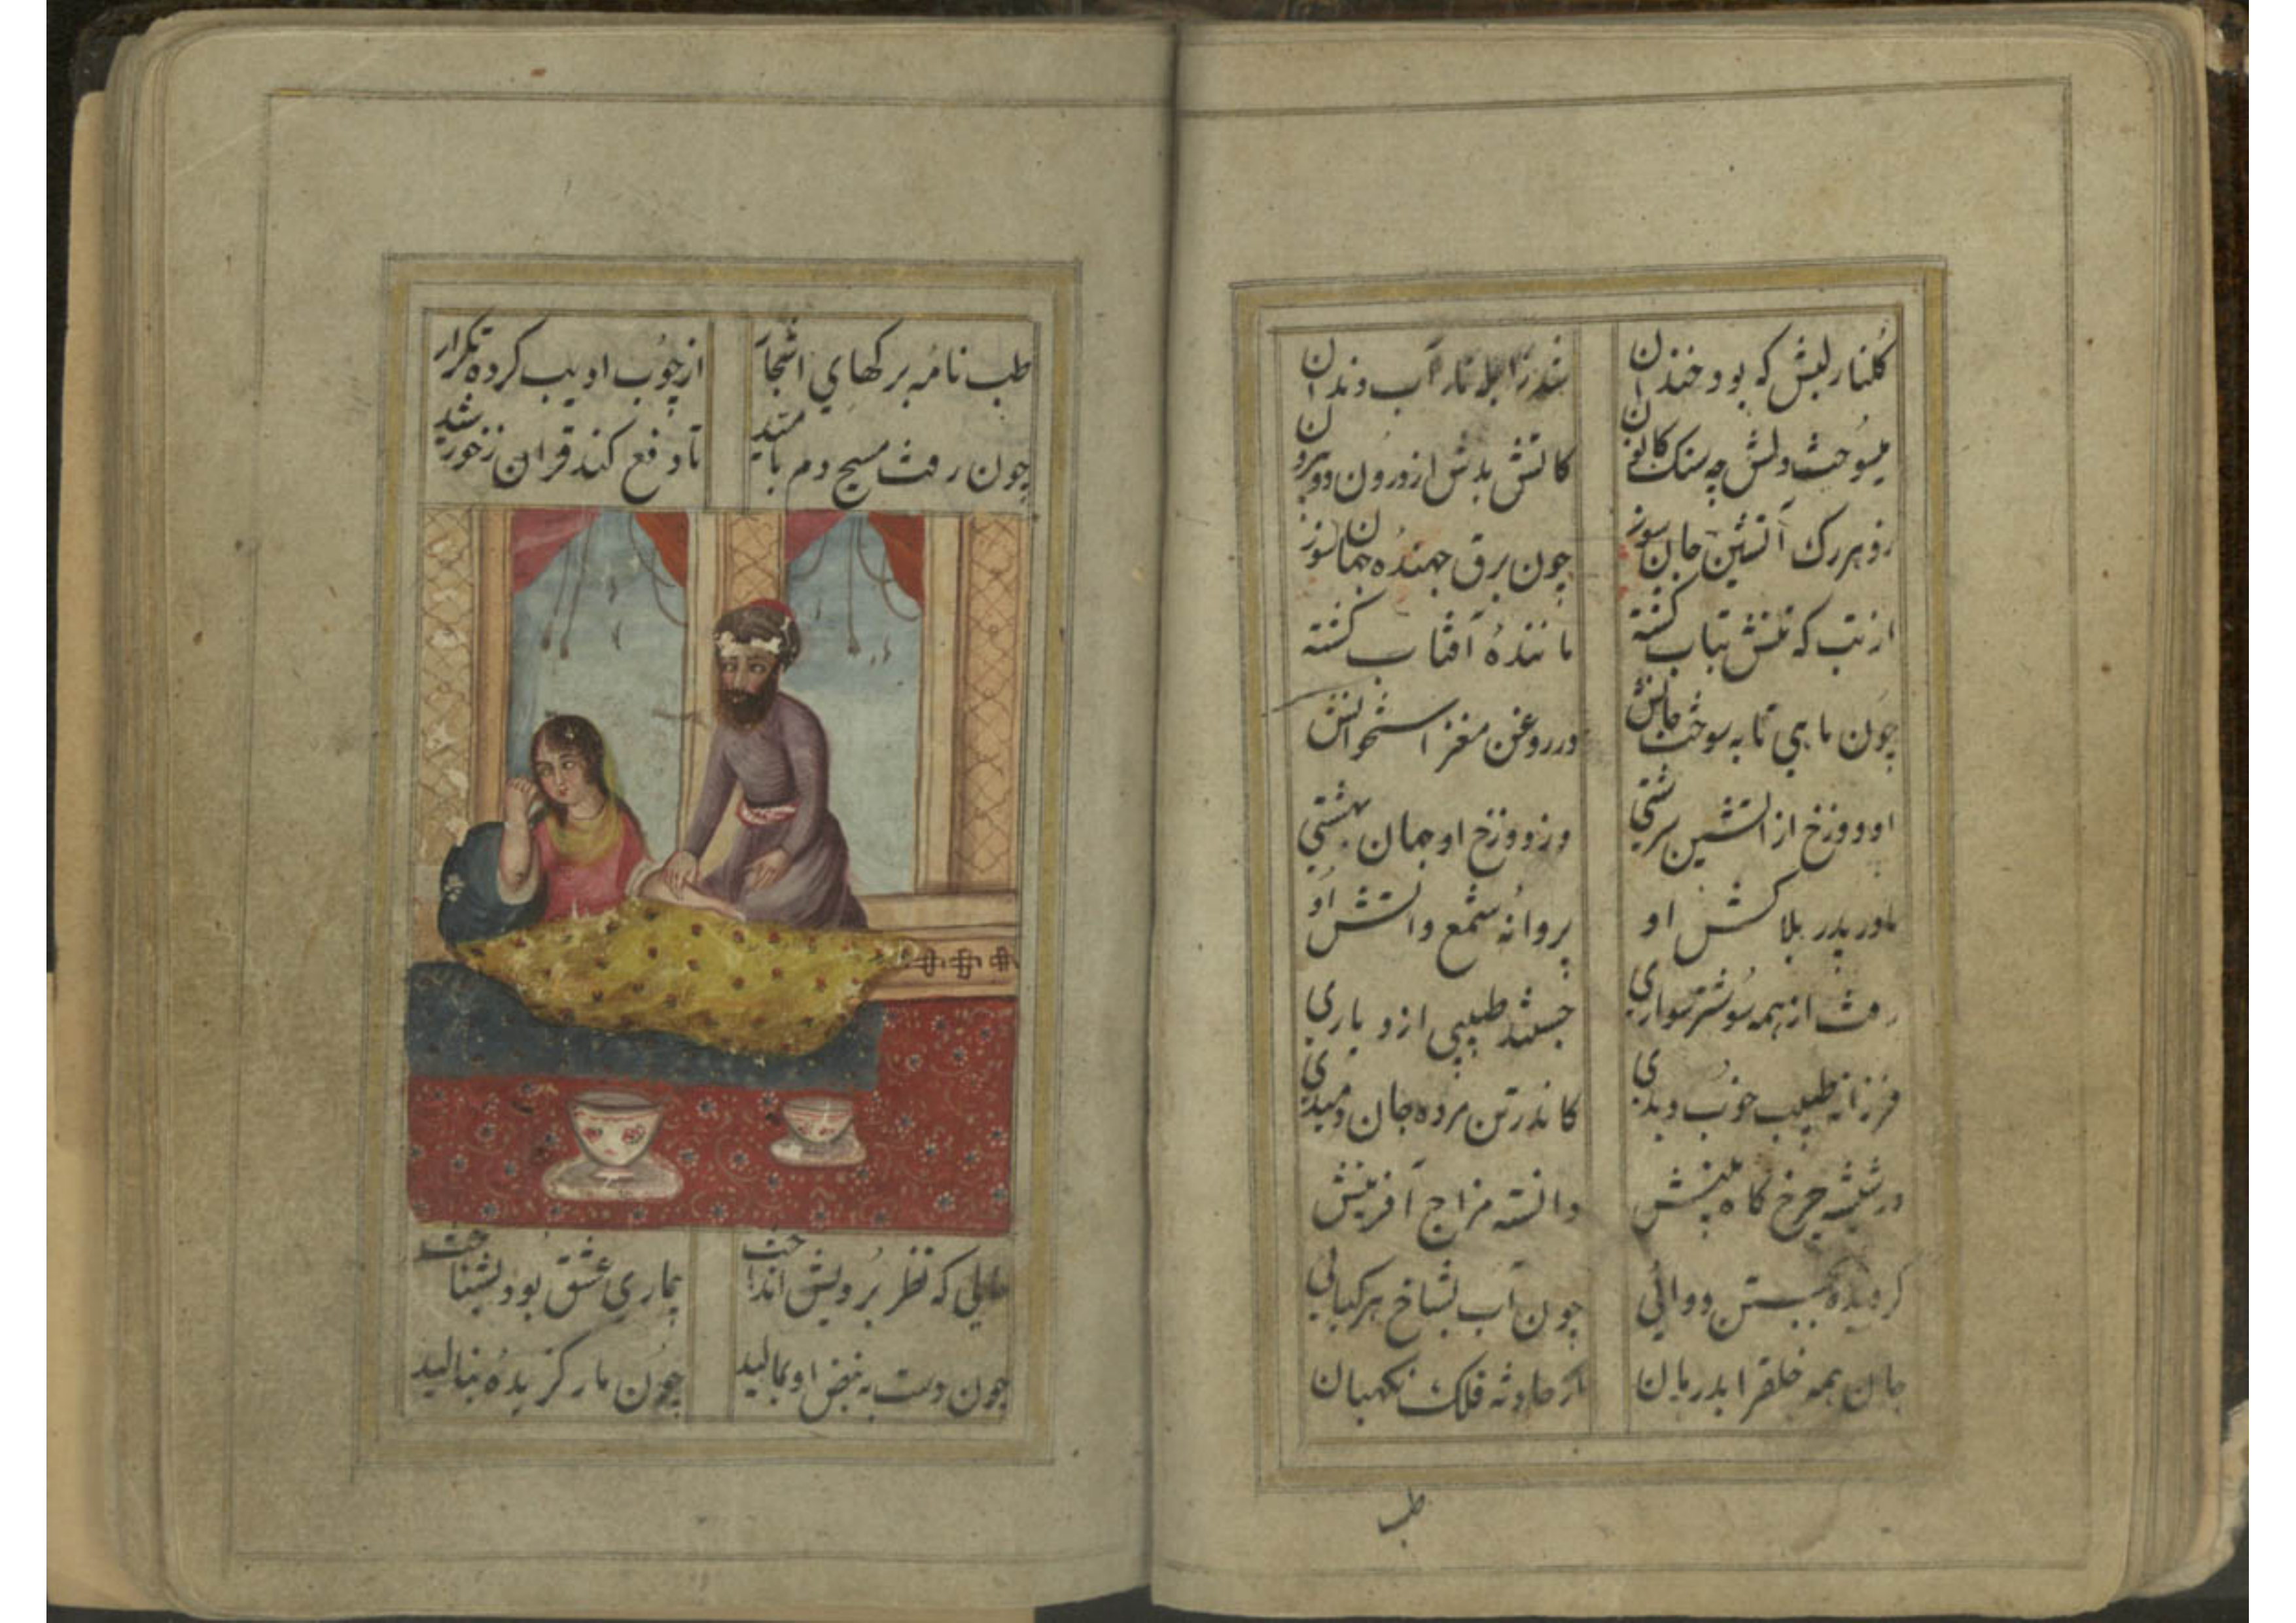 کلنار لبش که بود خندان شد ز ابله تار آب دندان
میسوخت دلش چه سنک کانون کاتش بدش از درون و بیرون
زو هر رک آتشین جان سوز چون برق جهنده جهان سوز
از تب که تنش بتاب کشته ماننده آفتاب کشته
چون ماهی تابه سوخت جانش در روغن مغز استخوانش
او دوزخ از اتشین سرشتی وز دوزخ او جهان بهشتی
مادر پدر بلاکش او پروانه شمع واتش او
رفت از همه سو شتر سواری جستند طبیبی از دیاری
فرزانه طبیب خوب دیدی کاندر تن مرده جان دمیدی
در شیشه چرخ کاه بینش دانسته مزاج آفرینش
کردیده ببستن دوائی چون آب بشاخ هر کیائی
جان همه خلقرا بدرمان از حادثه فلک نکهبان
طب
طب نامه برکهای اشجار از چوب ادیب کرده تکرار
چون رفت مسیح دم بامید تا دفع کند قران ز خورشید
حالی که نظر برویش انداخت بیماری عشق بود بشناخت
چون دست به نبض او بمالید چون مار کزیده بنالید